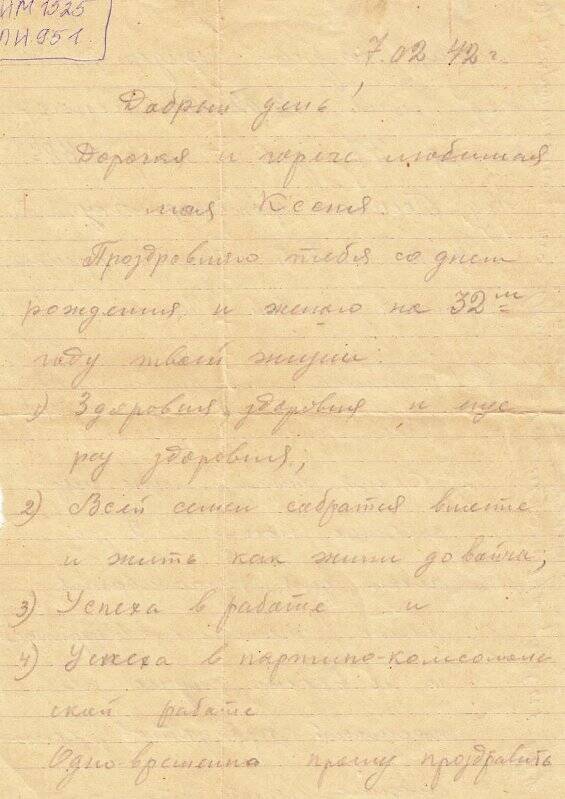 ИМ 1525
ПИ 951
7.02 42 г.
Добрый день!
Дорогая и горяче любимая
моя Ксеня.
Проздровляю тебя со днем
рождения, и желаю на 32 м
году твоей жизни:
1) Здоровия, здоровия, и еще
раз здоровия;
2) Всей семьи собратся вместе
и жить как жили до войны;
3) Успеха в работе и
4) Успеха в партино-комсомоль
ской работе
Одно временно прошу проздравить